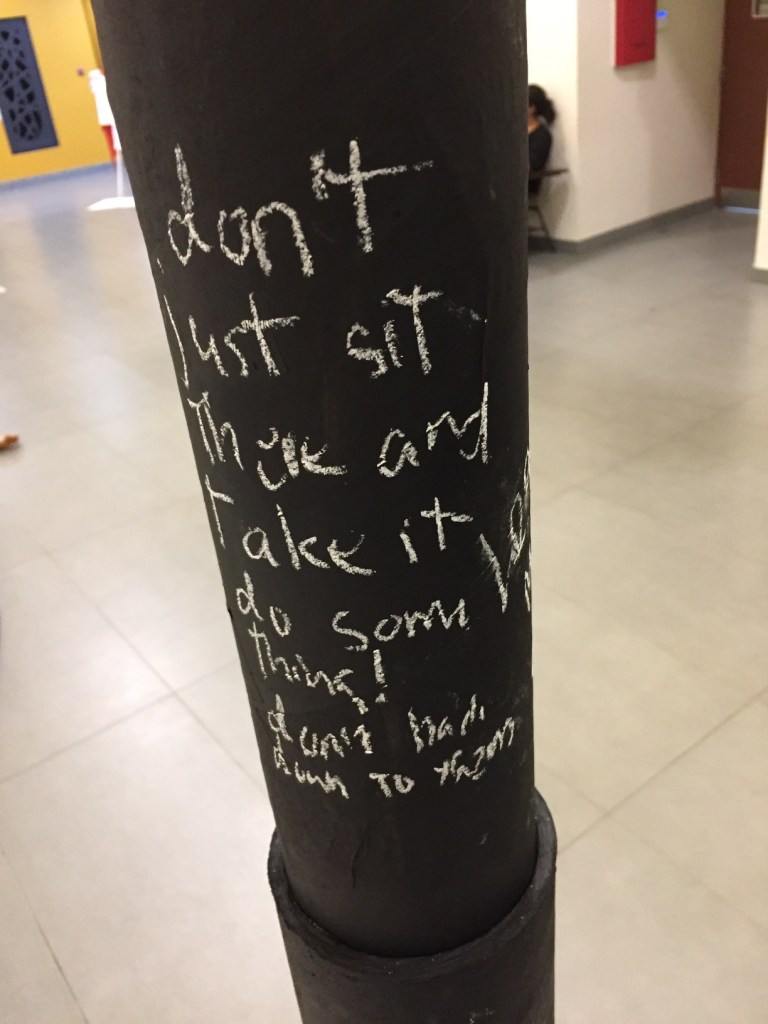 don't
just sit
there and
take it
do some
thing!
down to them